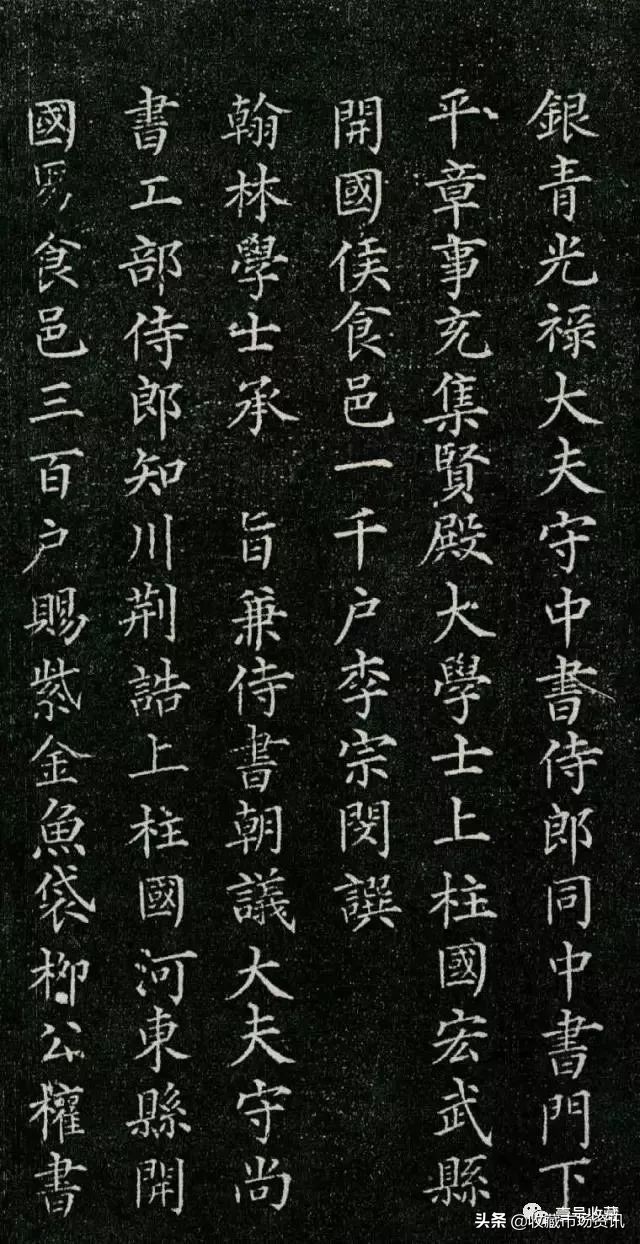 銀青光祿大夫守中書侍郎同中書門下
平章事充集賢殿大學士上柱國宏武縣
開國侯食邑一千户李宗閔譔
翰林學士承 旨兼侍書朝議大夫守尚
書工部侍郎知川荆誥上柱國河東縣開
國男食邑三百户賜紫金魚袋柳公權書
壹号收藏
头条 @收藏市场资讯